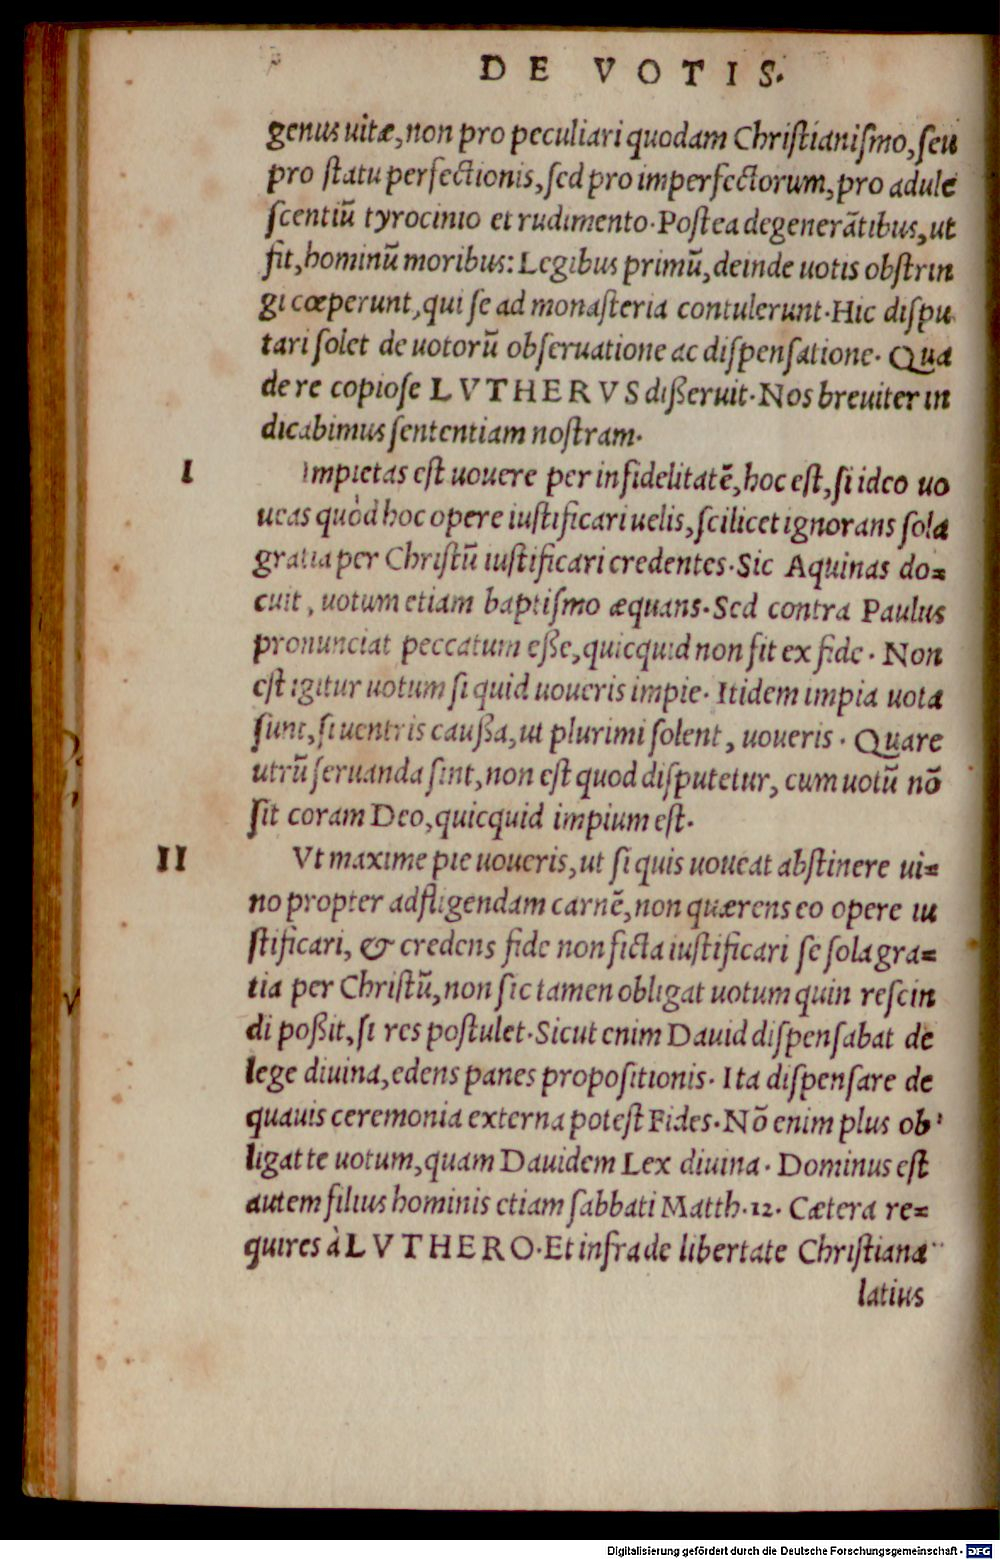 DE VOTIS.
genus uitæ, non pro peculiari quodam Chriſtianiſmo, ſeu
pro ſtatu perfectionis, ſed pro imperfectorum, pro adule
ſcentiũ tyrocinio et rudimento. Poſtea degenerãtibus, ut
fit, hominũ moribus: Legibus primũ, deinde uotis obſtrin
gi cœperunt, qui ſe ad monaſteria contulerunt. Hic diſpu
tari ſolet de uotorũ obſeruatione ac diſpenſatione. Qua
de re copioſe LVTHERVS dißeruit. Nos breuiter in
dicabimus ſententiam noſtram.
I Impietas eſt uouere per infidelitatẽ, hoc eſt, ſi ideo uo
ueas quòd hoc opere iuſtificari uelis, ſcilicet ignorans ſola
gratia per Chriſtũ iuſtificari credentes. Sic Aquinas do=
cuit, uotum etiam baptiſmo æquans. Sed contra Paulus
pronunciat peccatum eße, quicquid non fit ex fide. Non
eſt igitur uotum ſi quid uoueris impie. Itidem impia uota
ſunt, ſi uentris caußa, ut plurimi ſolent, uoueris. Quare
utrũ ſeruanda ſint, non eſt quod diſputetur, cum uotũ nõ
ſit coram Deo, quicquid impium eſt.
II Vt maxime pie uoueris, ut ſi quis uoueat abſtinere ui=
no propter adfligendam carnẽ, non quærens eo opere iu
ſtificari, & credens fide non ficta iuſtificari ſe ſola gra=
tia per Chriſtũ, non ſic tamen obligat uotum quin reſcin
di poßit, ſi res poſtulet. Sicut enim Dauid diſpenſabat de
lege diuina, edens panes propoſitionis. Ita diſpenſare de
quauis ceremonia externa poteſt Fides. Nõ enim plus ob
ligat te uotum, quam Dauidem Lex diuina. Dominus eſt
autem filius hominis etiam ſabbati Matth. 12. Cætera re=
quires à LVTHERO. Et infra de libertate Chriſtiana
latius
Digitalisierung gefördert durch die Deutsche Forschungsgemeinschaft - DFG